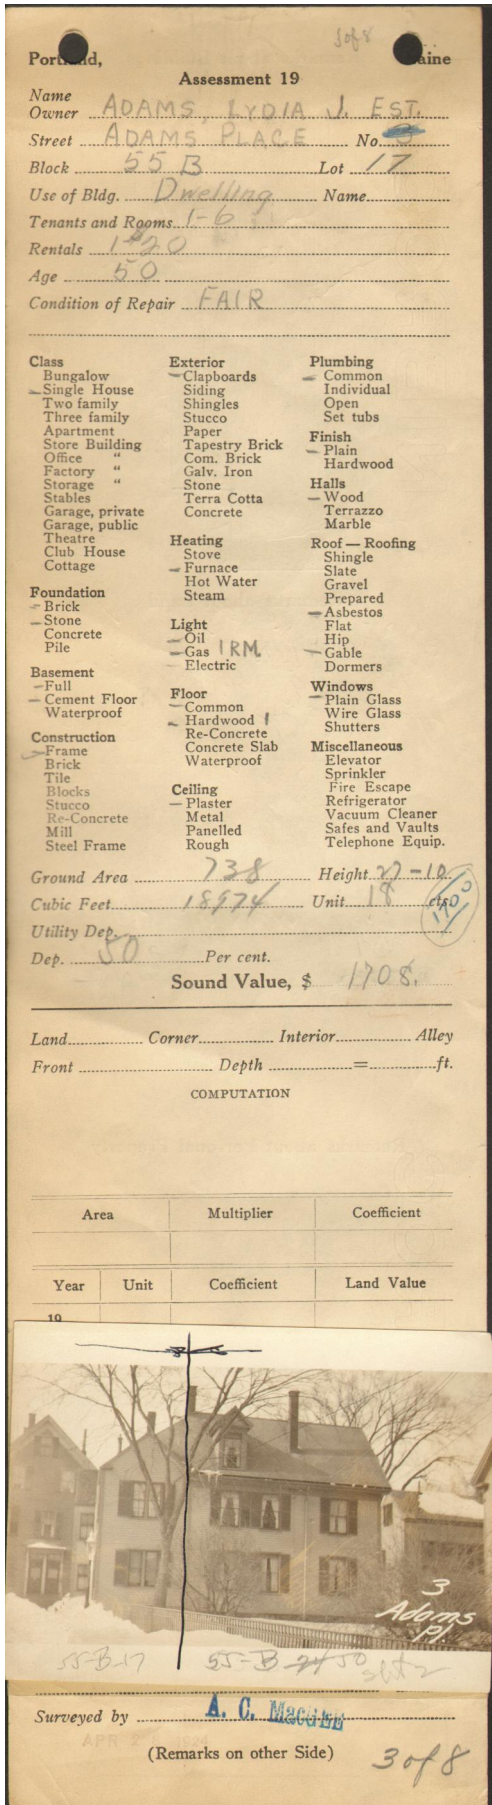 3 of 8
Portland, Maine
Assessment 19
Name
Owner ADAMS, LYDIA J. EST.
Street ADAMS PLACE No. 3
Block 55 B Lot 17
Use of Bldg. Dwelling Name
Tenants and Rooms 1-6
Rentals 1-$20
Age 50
Condition of Repair FAIR
Class
Bungalow
Single House
Two family
Three family
Apartment
Store Building
Office "
Factory "
Storage "
Stables
Garage, private
Garage, public
Theatre
Club House
Cottage
Foundation
Brick
Stone
Concrete
Pile
Basement
Full
Cement Floor
Waterproof
Construction
Frame
Brick
Tile
Blocks
Stucco
Re-Concrete
Mill
Steel Frame
Exterior
Clapboards
Siding
Shingles
Stucco
Paper
Tapestry Brick
Com. Brick
Galv. Iron
Stone
Terra Cotta
Concrete
Heating
Stove
Furnace
Hot Water
Steam
Light
Oil
Gas 1 RM.
Electric
Floor
Common
Hardwood 1
Re-Concrete
Concrete Slab
Waterproof
Ceiling
Plaster
Metal
Panelled
Rough
Plumbing
Common
Individual
Open
Set tubs
Finish
Plain
Hardwood
Halls
Wood
Terrazzo
Marble
Roof — Roofing
Shingle
Slate
Gravel
Prepared
Asbestos
Flat
Hip
Gable
Dormers
Windows
Plain Glass
Wire Glass
Shutters
Miscellaneous
Elevator
Sprinkler
Fire Escape
Refrigerator
Vacuum Cleaner
Safes and Vaults
Telephone Equip.
Ground Area 738 Height 27-10
Cubic Feet 18974 Unit 18 cts.
1700
Utility Dep.
Dep. 50 Per cent.
Sound Value, $ 1708.
Land Corner Interior Alley
Front Depth = ft.
COMPUTATION
Area Multiplier Coefficient
Year Unit Coefficient Land Value
19
3
Adams
Pl.
55-B-17 55-B-24 50
Surveyed by A. C. MacGEE
(Remarks on other Side)
3 of 8